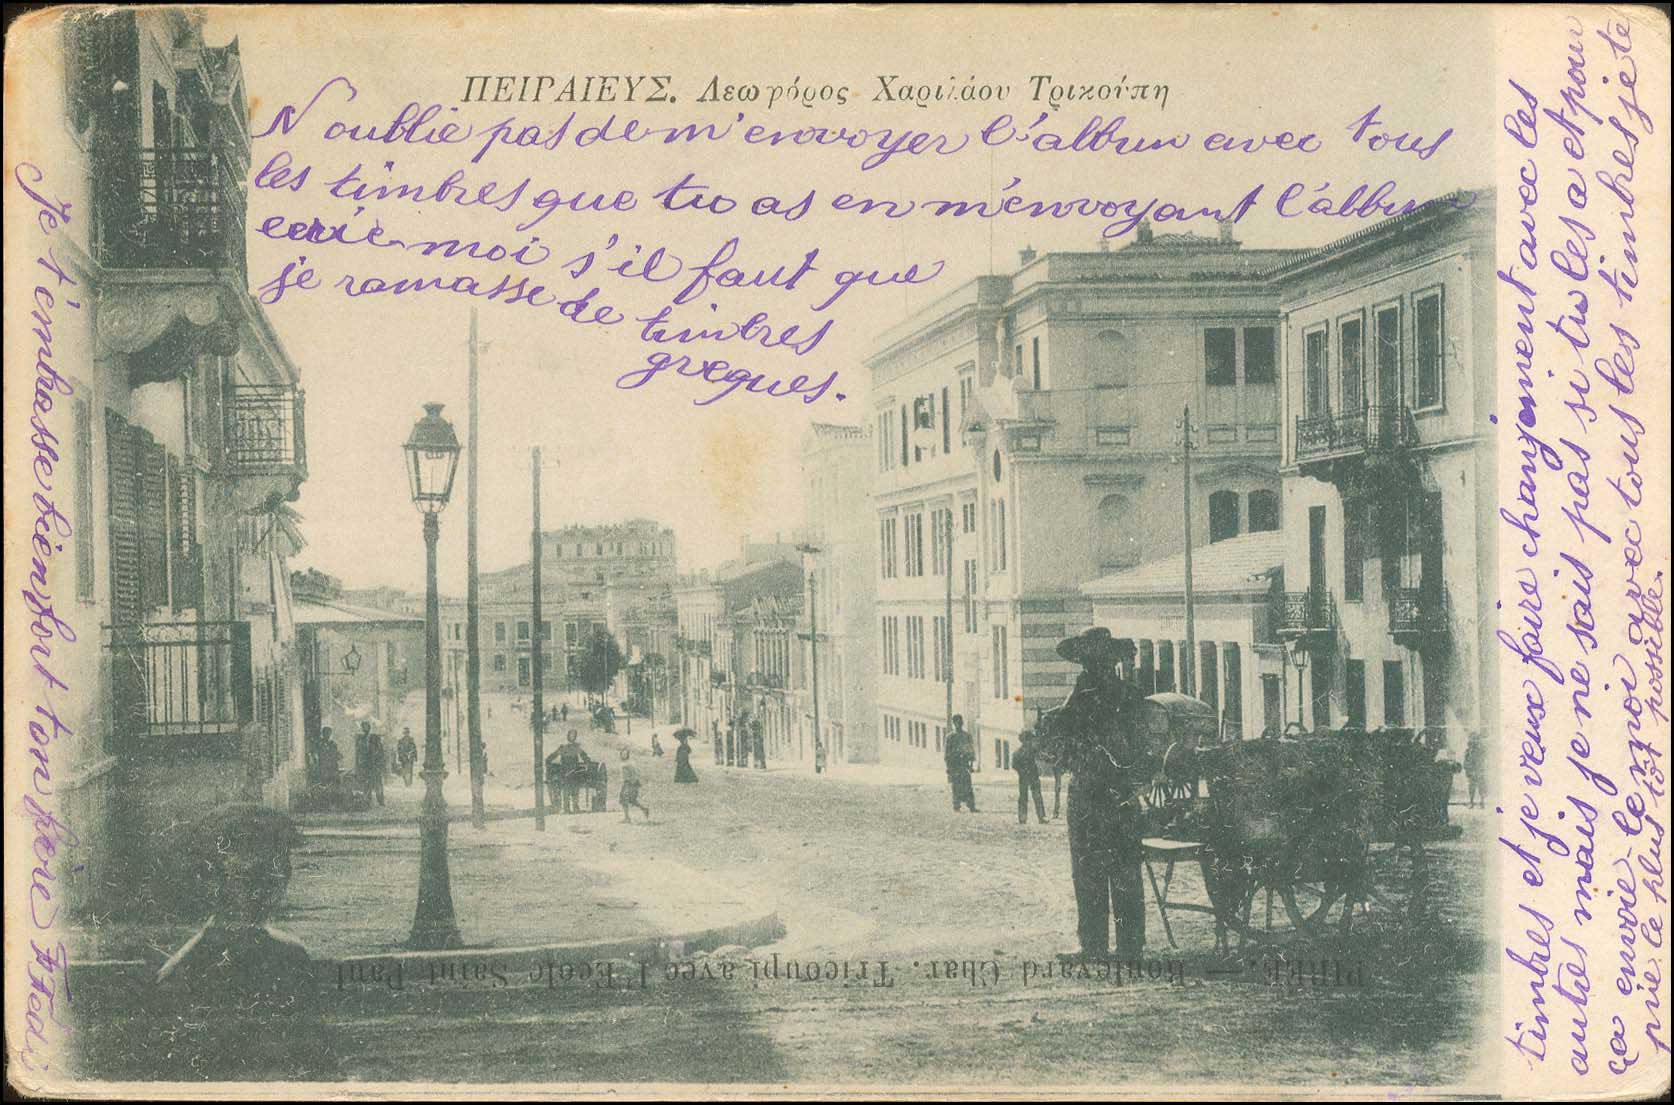 ΠΕΙΡΑΙΕΥΣ. Λεωφόρος Χαριλάου Τρικούπη
N'oublie pas de m'envoyer l'album avec tous
les timbres que tu as en m'envoyant l'album
ecrie moi s'il faut que
je ramasse de
timbres
greques.
timbres et je veux faire changement avec les
autres mais je ne sais pas si tu les a et pour
ça envoie-le moi avec tous les timbres je te
prie le plus tôt possible.
Je t'embrasse bien fort ton frère Fredi
PIRÉE. — Boulevard Char. Tricoupi avec l'Ecole Saint Paul